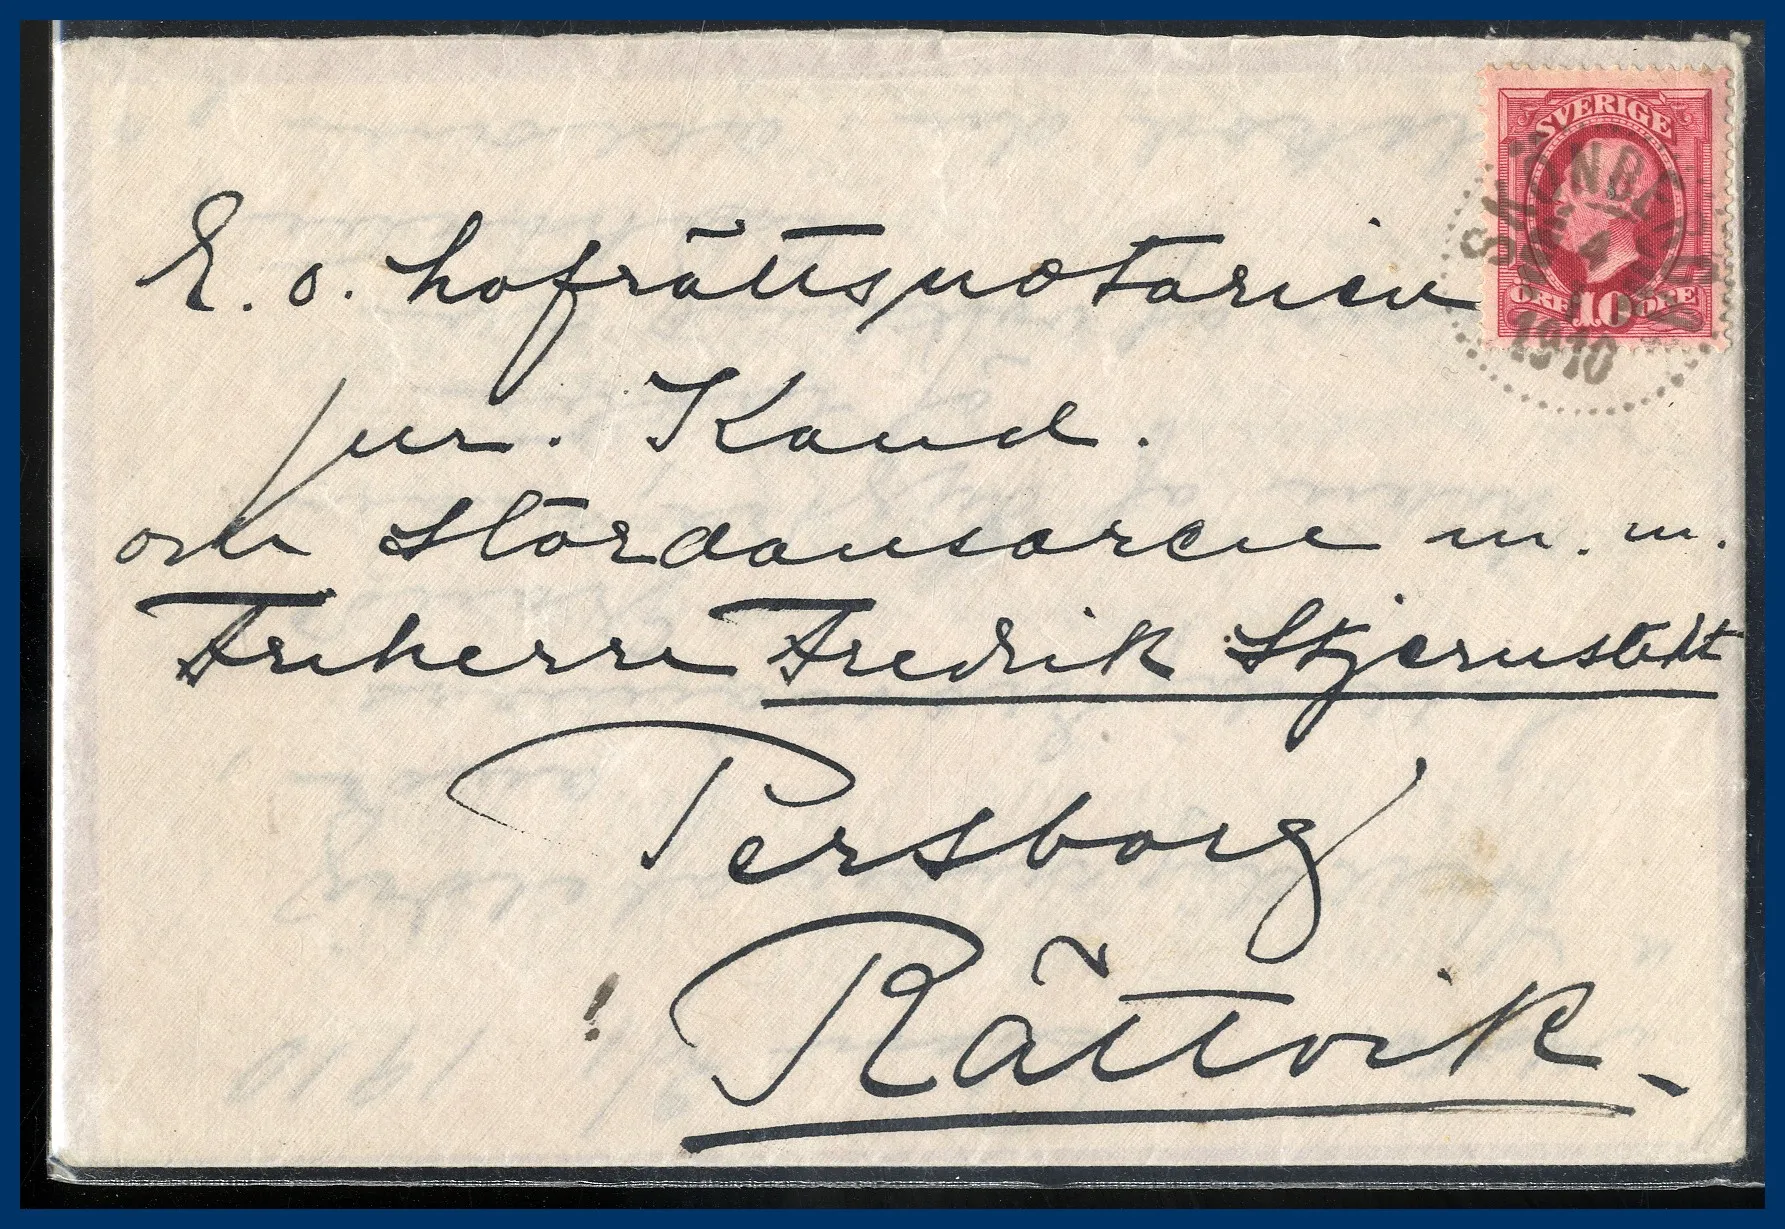 SVERIGE
ÖRE 10 ÖRE
4
1910
E. o. hofrättsnotarien
jur. Kand.
och Stordansaren m. m.
Friherre Fredrik Stjernstedt
Persborg
Rättvik